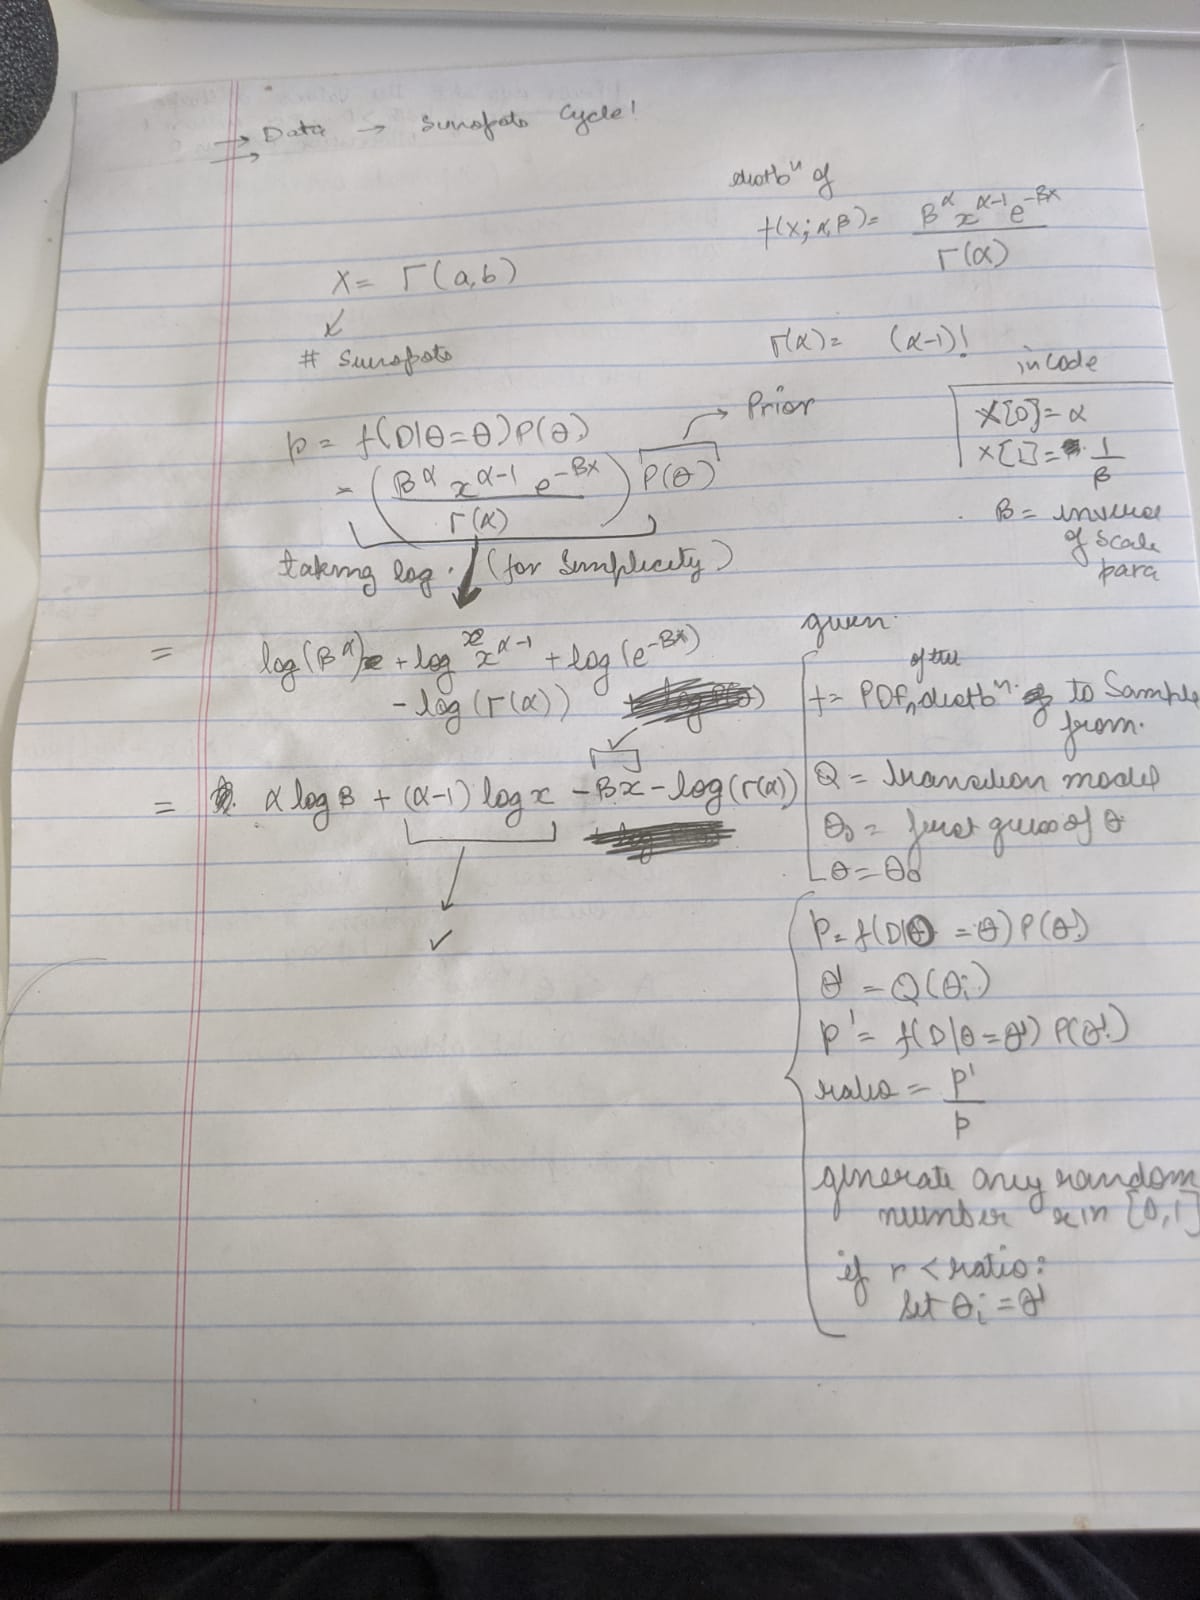 → Data → Sunspots Cycle!
→
distbⁿ of
f(x; α, β) = β^α x^(α-1) e^(-βx) / Γ(α)
X = Γ(a, b)
↓
# Sunspots
Γ(α) = (α-1)!
in code
X[0] = α
X[1] = 1/β
β = inverse
of scale
para
p = f(D|θ=θ) P(θ)
→ Prior
= (β^α x^(α-1) e^(-βx) / Γ(α)) P(θ)
taking log. (for Simplicity)
= log(β^α) + log x^(α-1) + log(e^(-βx))
- log(Γ(α))
= α log β + (α-1) log x - βx - log(Γ(α))
✓
given.
f = PDF of the distbⁿ. to Sample
from.
Q = transition model
θ₀ = first guess of θ
θ = θ₀
p = f(D|θ = θ) P(θ)
θ' = Q(θᵢ)
p' = f(D|θ = θ') P(θ')
ratio = p'/p
generate any random
number r in [0,1]
if r < ratio:
set θᵢ = θ'